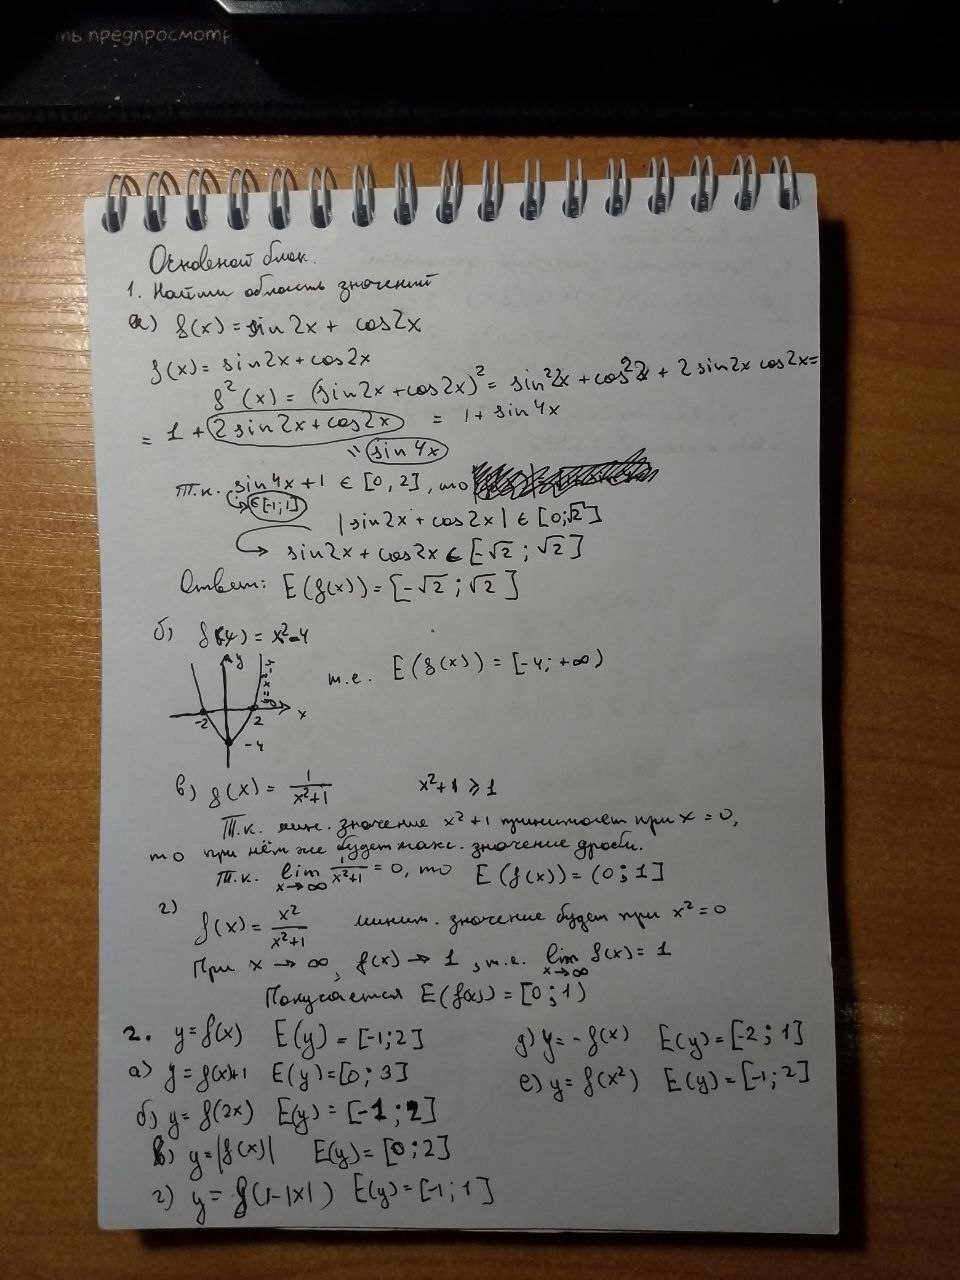 ть предпросмотр
Основной блок.
1. Найти область значений
а) f(x) = sin 2x + cos2x
f(x) = sin2x + cos2x
f²(x) = (sin2x + cos2x)² = sin²2x + cos²2x + 2 sin2x cos2x =
= 1 + 2 sin 2x + cos2x = 1 + sin 4x
" sin 4x
Т.к. sin 4x + 1 ∈ [0, 2], то
∈ [-1; 1]
| sin2x + cos2x | ∈ [0; √2]
sin2x + cos2x ∈ [-√2 ; √2]
Ответ: E (f(x)) = [-√2 ; √2]
б) f(x) = x² - 4
y
т.е. E (f(x)) = [-4; +∞)
-2 2 x
-4
в) f(x) = 1/(x²+1) x²+1 ⩾ 1
Т.к. мин. значение x²+1 принимает при x = 0,
то при нём же будет макс. значение дроби.
Т.к. lim x→∞ 1/(x²+1) = 0, то E (f(x)) = (0 ; 1]
г) f(x) = x²/(x²+1) миним. значение будет при x² = 0
При x → ∞, f(x) → 1, т.е. lim x→∞ f(x) = 1
Получается E(f(x)) = [0 ; 1)
2. y = f(x) E(y) = [-1; 2]
а) y = f(x)+1 E(y) = [0 ; 3]
б) y = f(2x) E(y) = [-1 ; 2]
в) y = |f(x)| E(y) = [0 ; 2]
г) y = f(1-|x|) E(y) = [-1 ; 1]
д) y = - f(x) E(y) = [-2 ; 1]
е) y = f(x²) E(y) = [-1 ; 2]